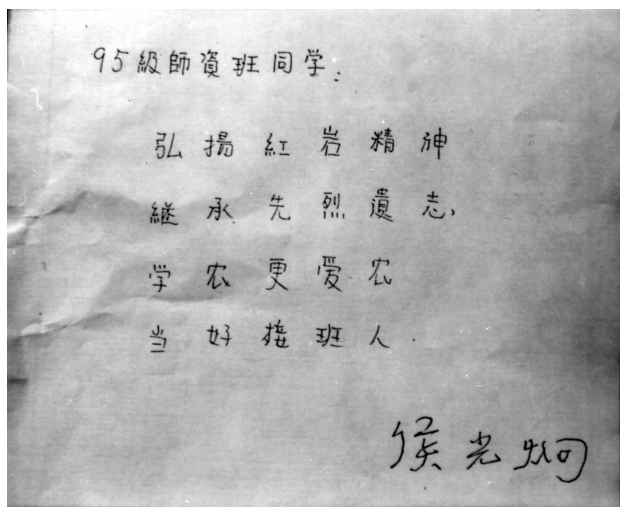 95級師資班同学:
弘揚紅岩精神
継承先烈遺志,
学农更爱农
当好接班人.
侯光炯